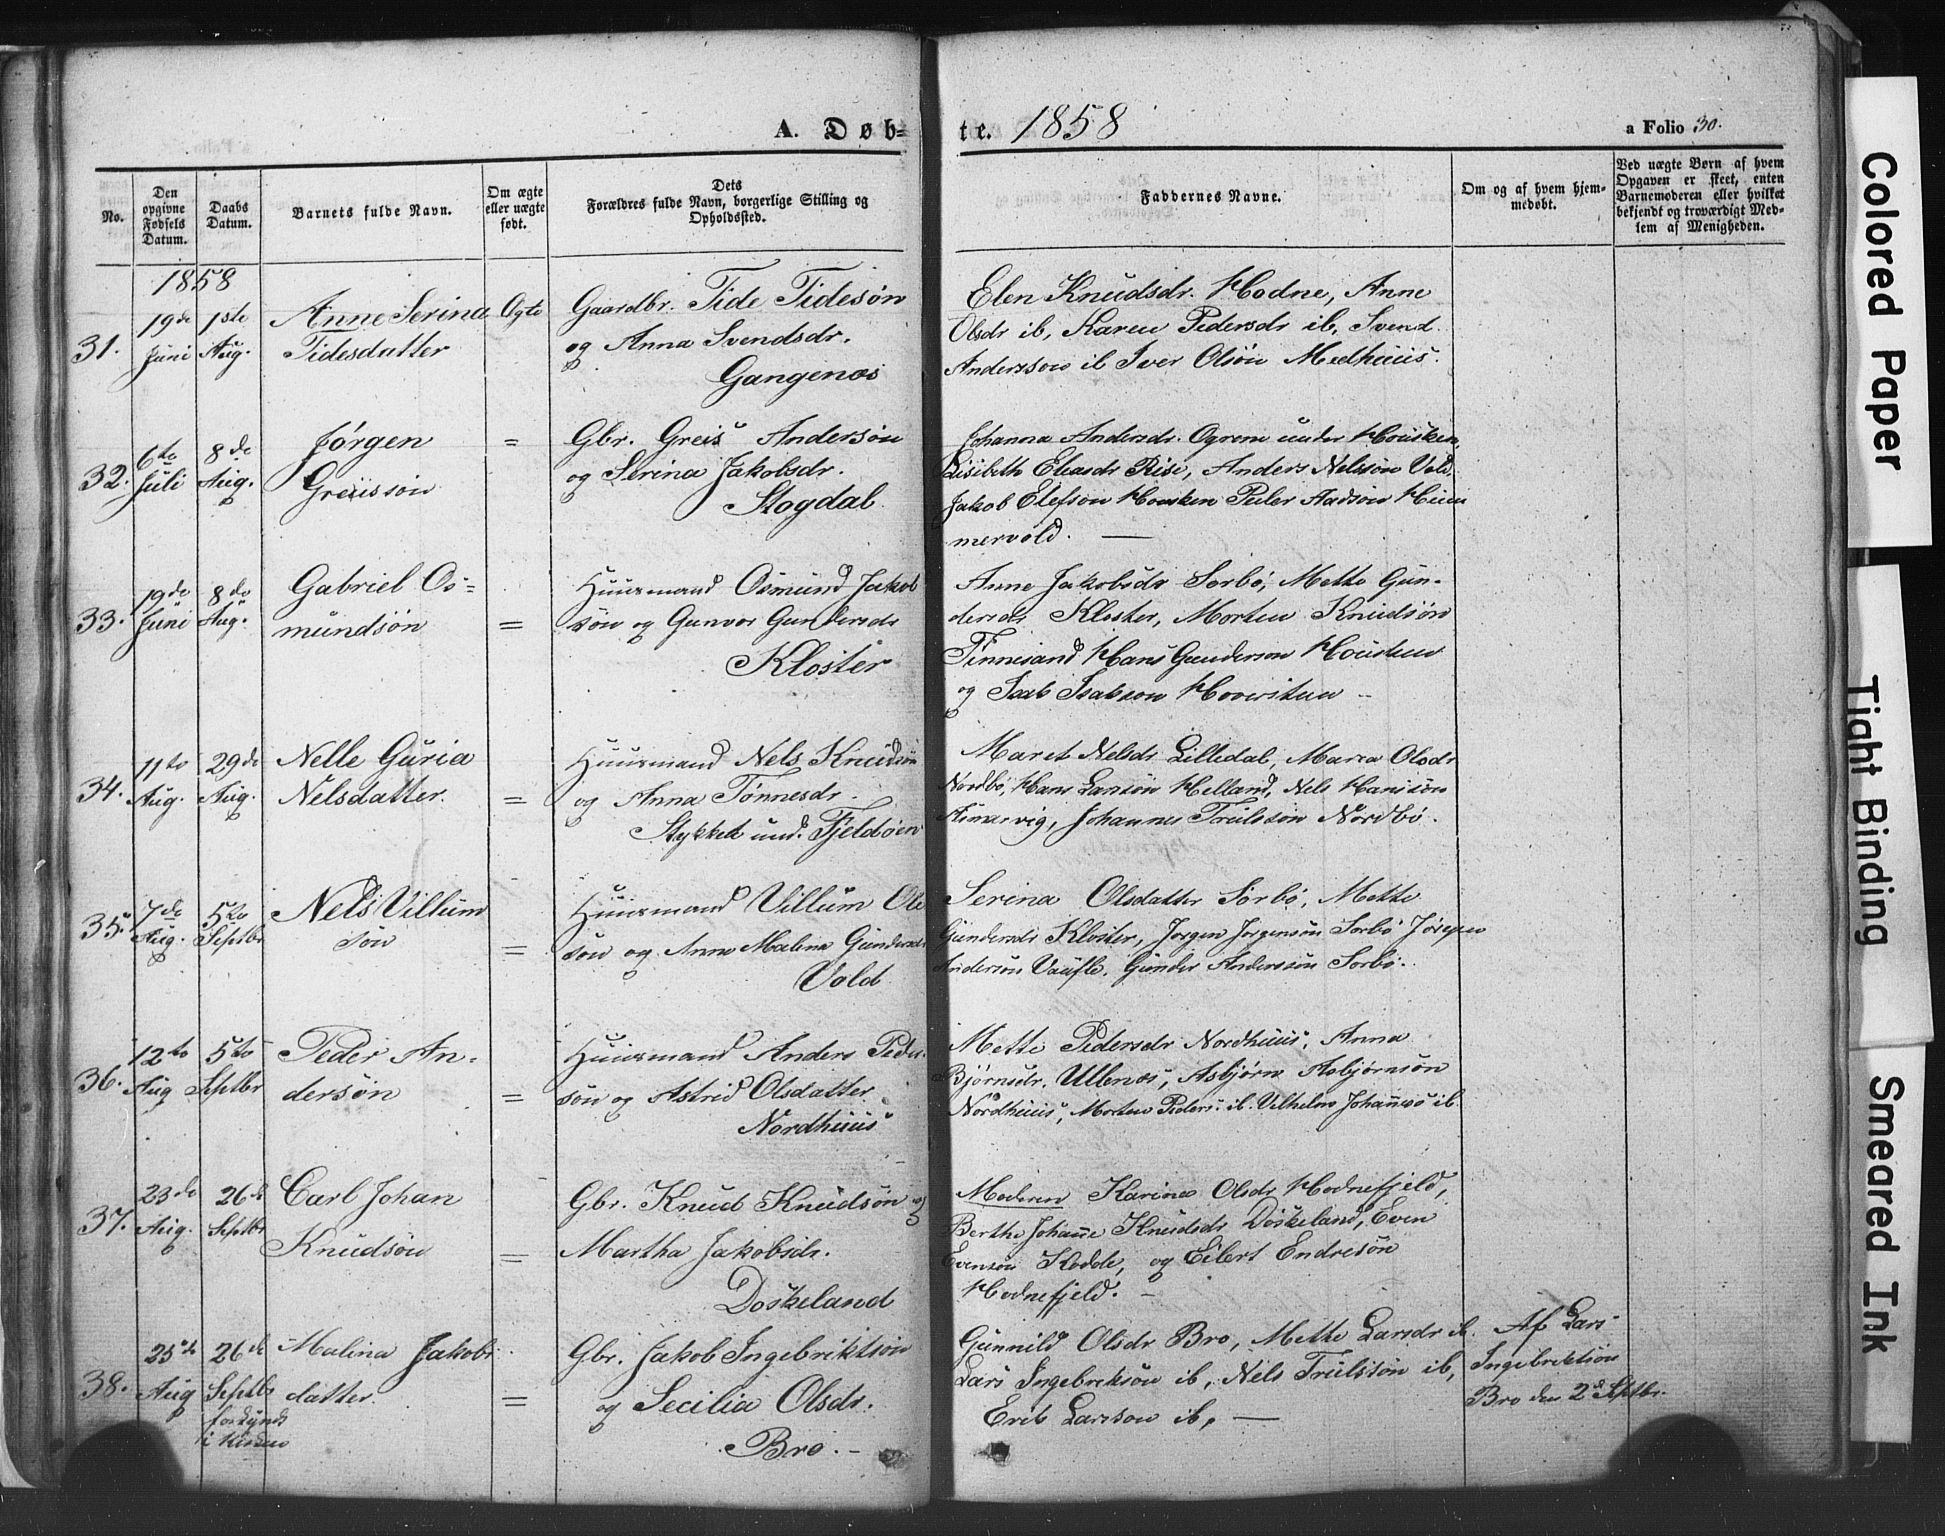 A. Døb=
te. 1858
a Folio 30.
No.
Den opgivne Fødsels Datum.
Daabs Datum.
Barnets fulde Navn.
Om ægte eller uægte født.
Dets Forældres fulde Navn, borgerlige Stilling og Opholdssted.
Faddernes Navne.
Om og af hvem hjemmedøbt.
Ved uægte Børn af hvem Opgaven er skeet, enten Barnemoderen eller hvilket bekjendt og troværdigt Medlem af Menigheden.
1858
31.
19de Juni
1ste Aug.
Anne Serina
Tidesdatter
Ægte
Gaardbr. Tide Tidesøn
og Anna Svendsdr.
Gangenæs
Elen Knudsdr. Hodne, Anne
Olsdr ib, Karen Pedersdr ib, Svend
Anderssøn ib Iver Olsøn Meelhuus.
32.
6te Juli
8de Aug.
Jørgen
Greiissøn
=
Gbr. Greis Andersøn
og Serina Jakobsdr.
Stogdal
Johanna Andersdr. under Housken
Lisibeth Eliasdr Rise, Anders Nelssøn Vold
Jakob Elefsøn Housken Peder Aadsøn
mervold.
33.
19de Juni
8de Aug.
Gabriel Os=
mundsøn
=
Huusmand Osmund Jakob
søn og Gunvor Gundersdr
Kloster
Anne Jakobsdr Sørbø, Mette Gun-
dersdr Kloster, Morten Knudsøn
Finnesand Hans Gundersøn
og Isak Isaksøn
34.
11te Aug.
29de Aug.
Nelle Guria
Nelsdatter.
=
Huusmand Nels Knudsøn
og Anna Tønnesdr.
Stykket und. Fjeldøen
Maret Nelsdr Lilledal, Maria Olsdr
Nordbø, Hans Larsøn Helland, Nels Hanssøn
Asmarvig, Johannes Truilssøn Nordbø.
35.
7de Aug.
5te Septbr
Nels Villum
søn
=
Huusmand Villum Ole
søn og Anne Malena Gundersdr
Vold
Serina Olsdatter Sørbø, Mette
Gundersdr Kloster, Jørgen Jørgensøn Sørbø Jørgen
Andersøn Vaufle, Gunder Anderssøn Sørbø.
36.
12te Aug
5te Septbr
Peder An-
dersøn
=
Huusmand Anders Peder
søn og Astrid Olsdatter
Nordhuus
Mette Pedersdr Nordhuus, Anna
Bjørnsdr. Ullenæs, Asbjørn Asbjørnsøn
Nordhuus, Morten Peders. ib. Vilhelm Johannes. ib.
37.
23de Aug.
26de Septbr
Carl Johan
Knudsøn
=
Gbr. Knud Knudsøn og
Martha Jakobsdr.
Døskeland
Moderen Karina Olsdr Hodnefjeld,
Berthe Johanne Knudsdr Døskeland, Even
Evensøn Kodde, og Eilert Endresøn
Hodnefjeld.
38.
25de Aug
26de Septbr
forkynd
i Kirken
Malina Jakobs
datter.
=
Gbr. Jakob Ingebriktsøn
og Secilia Olsdr.
Bro.
Gunnild Olsdr Bro, Mette Larsdr ib.
Lars Ingebriksøn ib, Nels Truilssøn ib,
Erik Larssøn ib,
Af Lars
Ingebriktsøn
Bro den 2de Septbr.
Colored Paper
Tight Binding
Smeared Ink